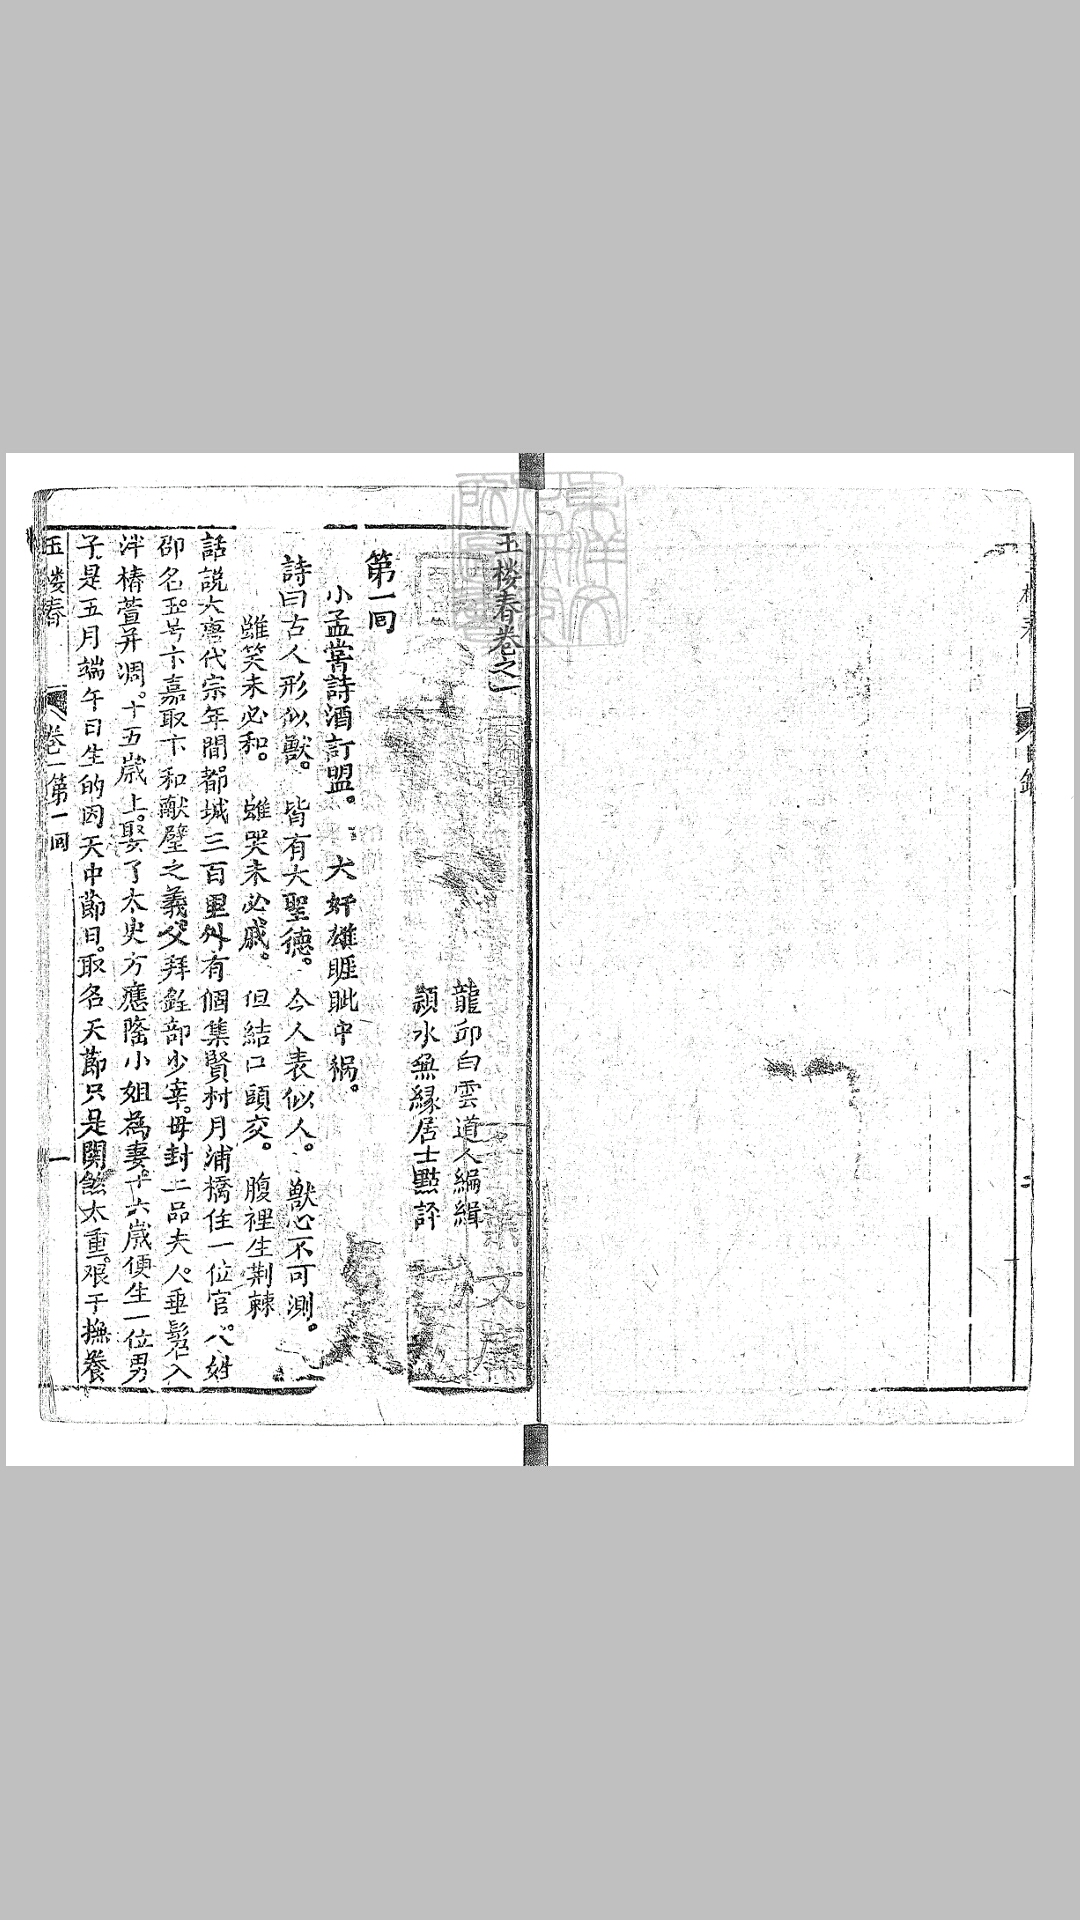 玉楼春卷之一
龍邱白雲道人編緝
潁水無緣居士點評
第一回
小孟嘗詩酒訂盟。 大奸雄睚眦中禍。
詩曰古人形似獸。 皆有大聖德。 今人表似人。 獸心不可測。
雖笑未必和。 雖哭未必戚。 但結口頭交。 腹裡生荆棘
話說大唐代宗年間都城三百里外有個集賢村月浦橋住一位官人姓
邵名玉号卞嘉取卞和献璧之義父拜銓部少宰。母封二品夫人。垂髫入
泮椿萱并凋。十五歲上。娶了太史方應隆小姐為妻。十六歲便生一位男
子是五月端午日生的因天中節日。取名天節只是関煞太重。艰于撫养
玉楼春 卷一第一回 一
目錄